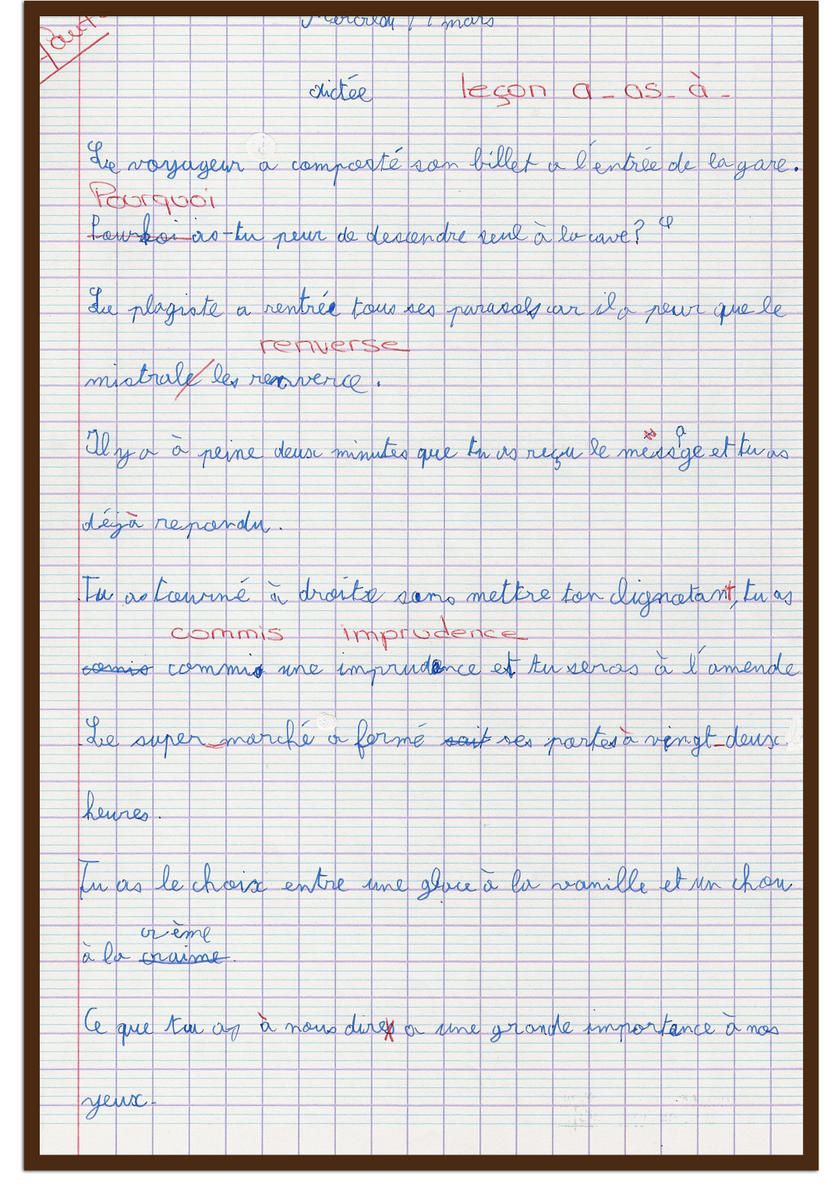 mars
dictée leçon a - as - à -
Le voyageur a composté son billet a l'entrée de la gare.
Pourquoi
Pourkoi as-tu peur de descendre seul à la cave?
Le plagiste a rentrée tous ses parasols car il a peur que le
renverse
mistrale les renverce.
a
Il y a à peine deux minutes que tu as reçu le messge et tu as
déjà repondu.
Tu as tourné à droite sans mettre ton clignotant, tu as
commis imprudence
comis commis une imprudence et tu seras à l'amende
Le super-marché a fermé sait ses portes à vingt-deux
heures.
Tu as le choix entre une glace à la vanille et un chou
crème
à la craime.
Ce que tu as à nous dires a une grande importance à nos
yeux.